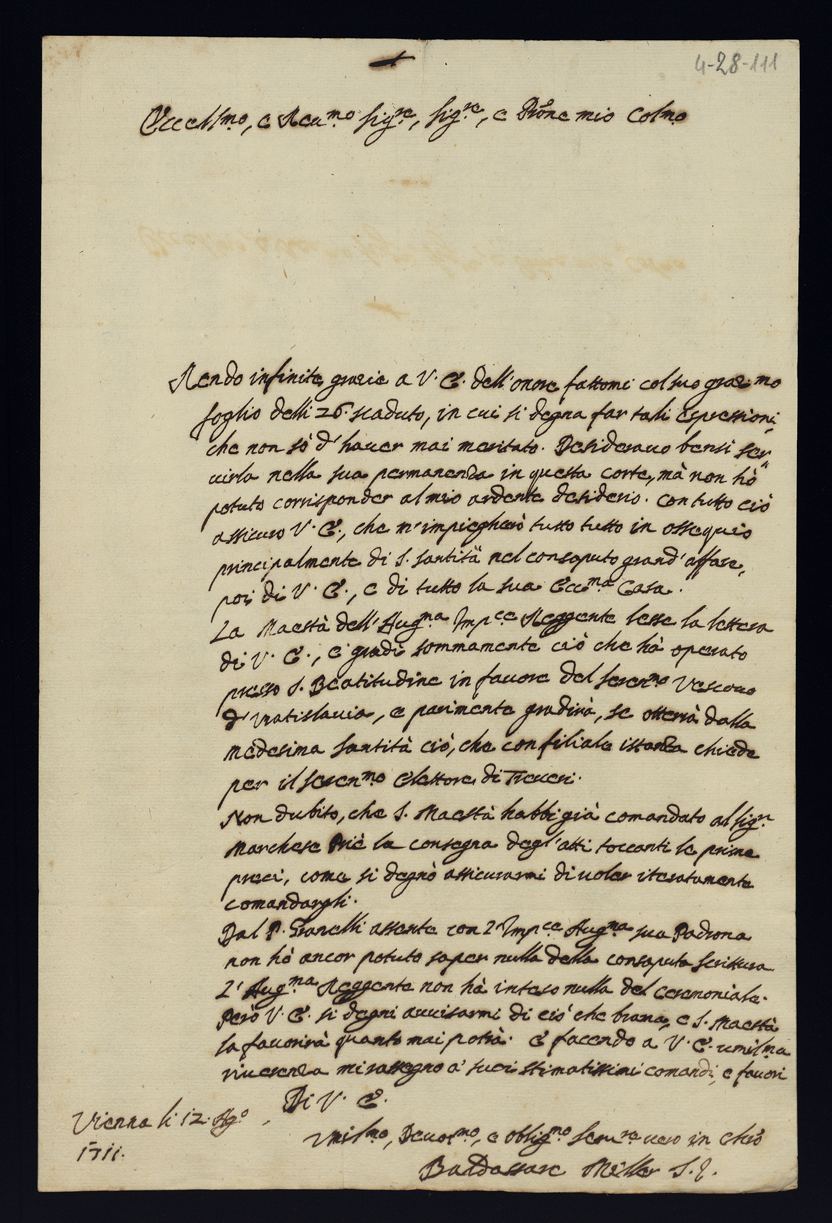 4-28-111
Eccellmo, e Reumo Sigre, Sigre, e Prōne mio Colmo
Rendo infinite grazie a V. E. dell'onore fattomi col suo grazmo
foglio delli 26. scaduto, in cui si degna far tali espressioni,
che non sò d'hauer mai meritato. Desiderauo bensì ser
uirla nella sua permanenza in questa corte, mà non hò
potuto corrisponder al mio ardente desiderio. Con tutto ciò
assicuro V. E., che m'impiegherò tutto tutto in ossequio
principalmente di S. Santità nel consaputo grand'affare,
poi di V. E., e di tutto la sua Eccma Casa.
La Maestà dell'Augma Impce Reggente lesse la lettera
di V. E., e gradì sommamente ciò che hà operato
presso S. Beatitudine in fauore del Serenmo Vescouo
d'Vratislauia, e parimente gradirà, se otterrà dalla
medesima Santità ciò, che con filiale istanza chiede
per il Serenmo Elettore di Treueri.
Non dubito, che S. Maestà habbi già comandato al Sigr
Marchese Priè la consegna degl'atti toccanti le prime
preci, come si degnò assicurarmi di uoler iteratamente
comandargli.
Dal P. Granelli assente con l'Impce Augma sua Padrona
non hò ancor potuto saper nulla della consaputa scrittura
L'Augma Reggente non hà inteso nulla del ceremoniale.
Però V. E. si degni auuisarmi di ciò che brama, e S. Maestà
la fauorirà quanto mai potrà. E facendo a V. E. umilma
riuerenza mi rassegno a' suoi stimatissimi comandi, e fauori
Di V. E.
Vienna li 12. Agō
1711.
Vmilmo, Deuotmo, e obligmo Serure uero in Chrō
Baldassare Miller S. J.